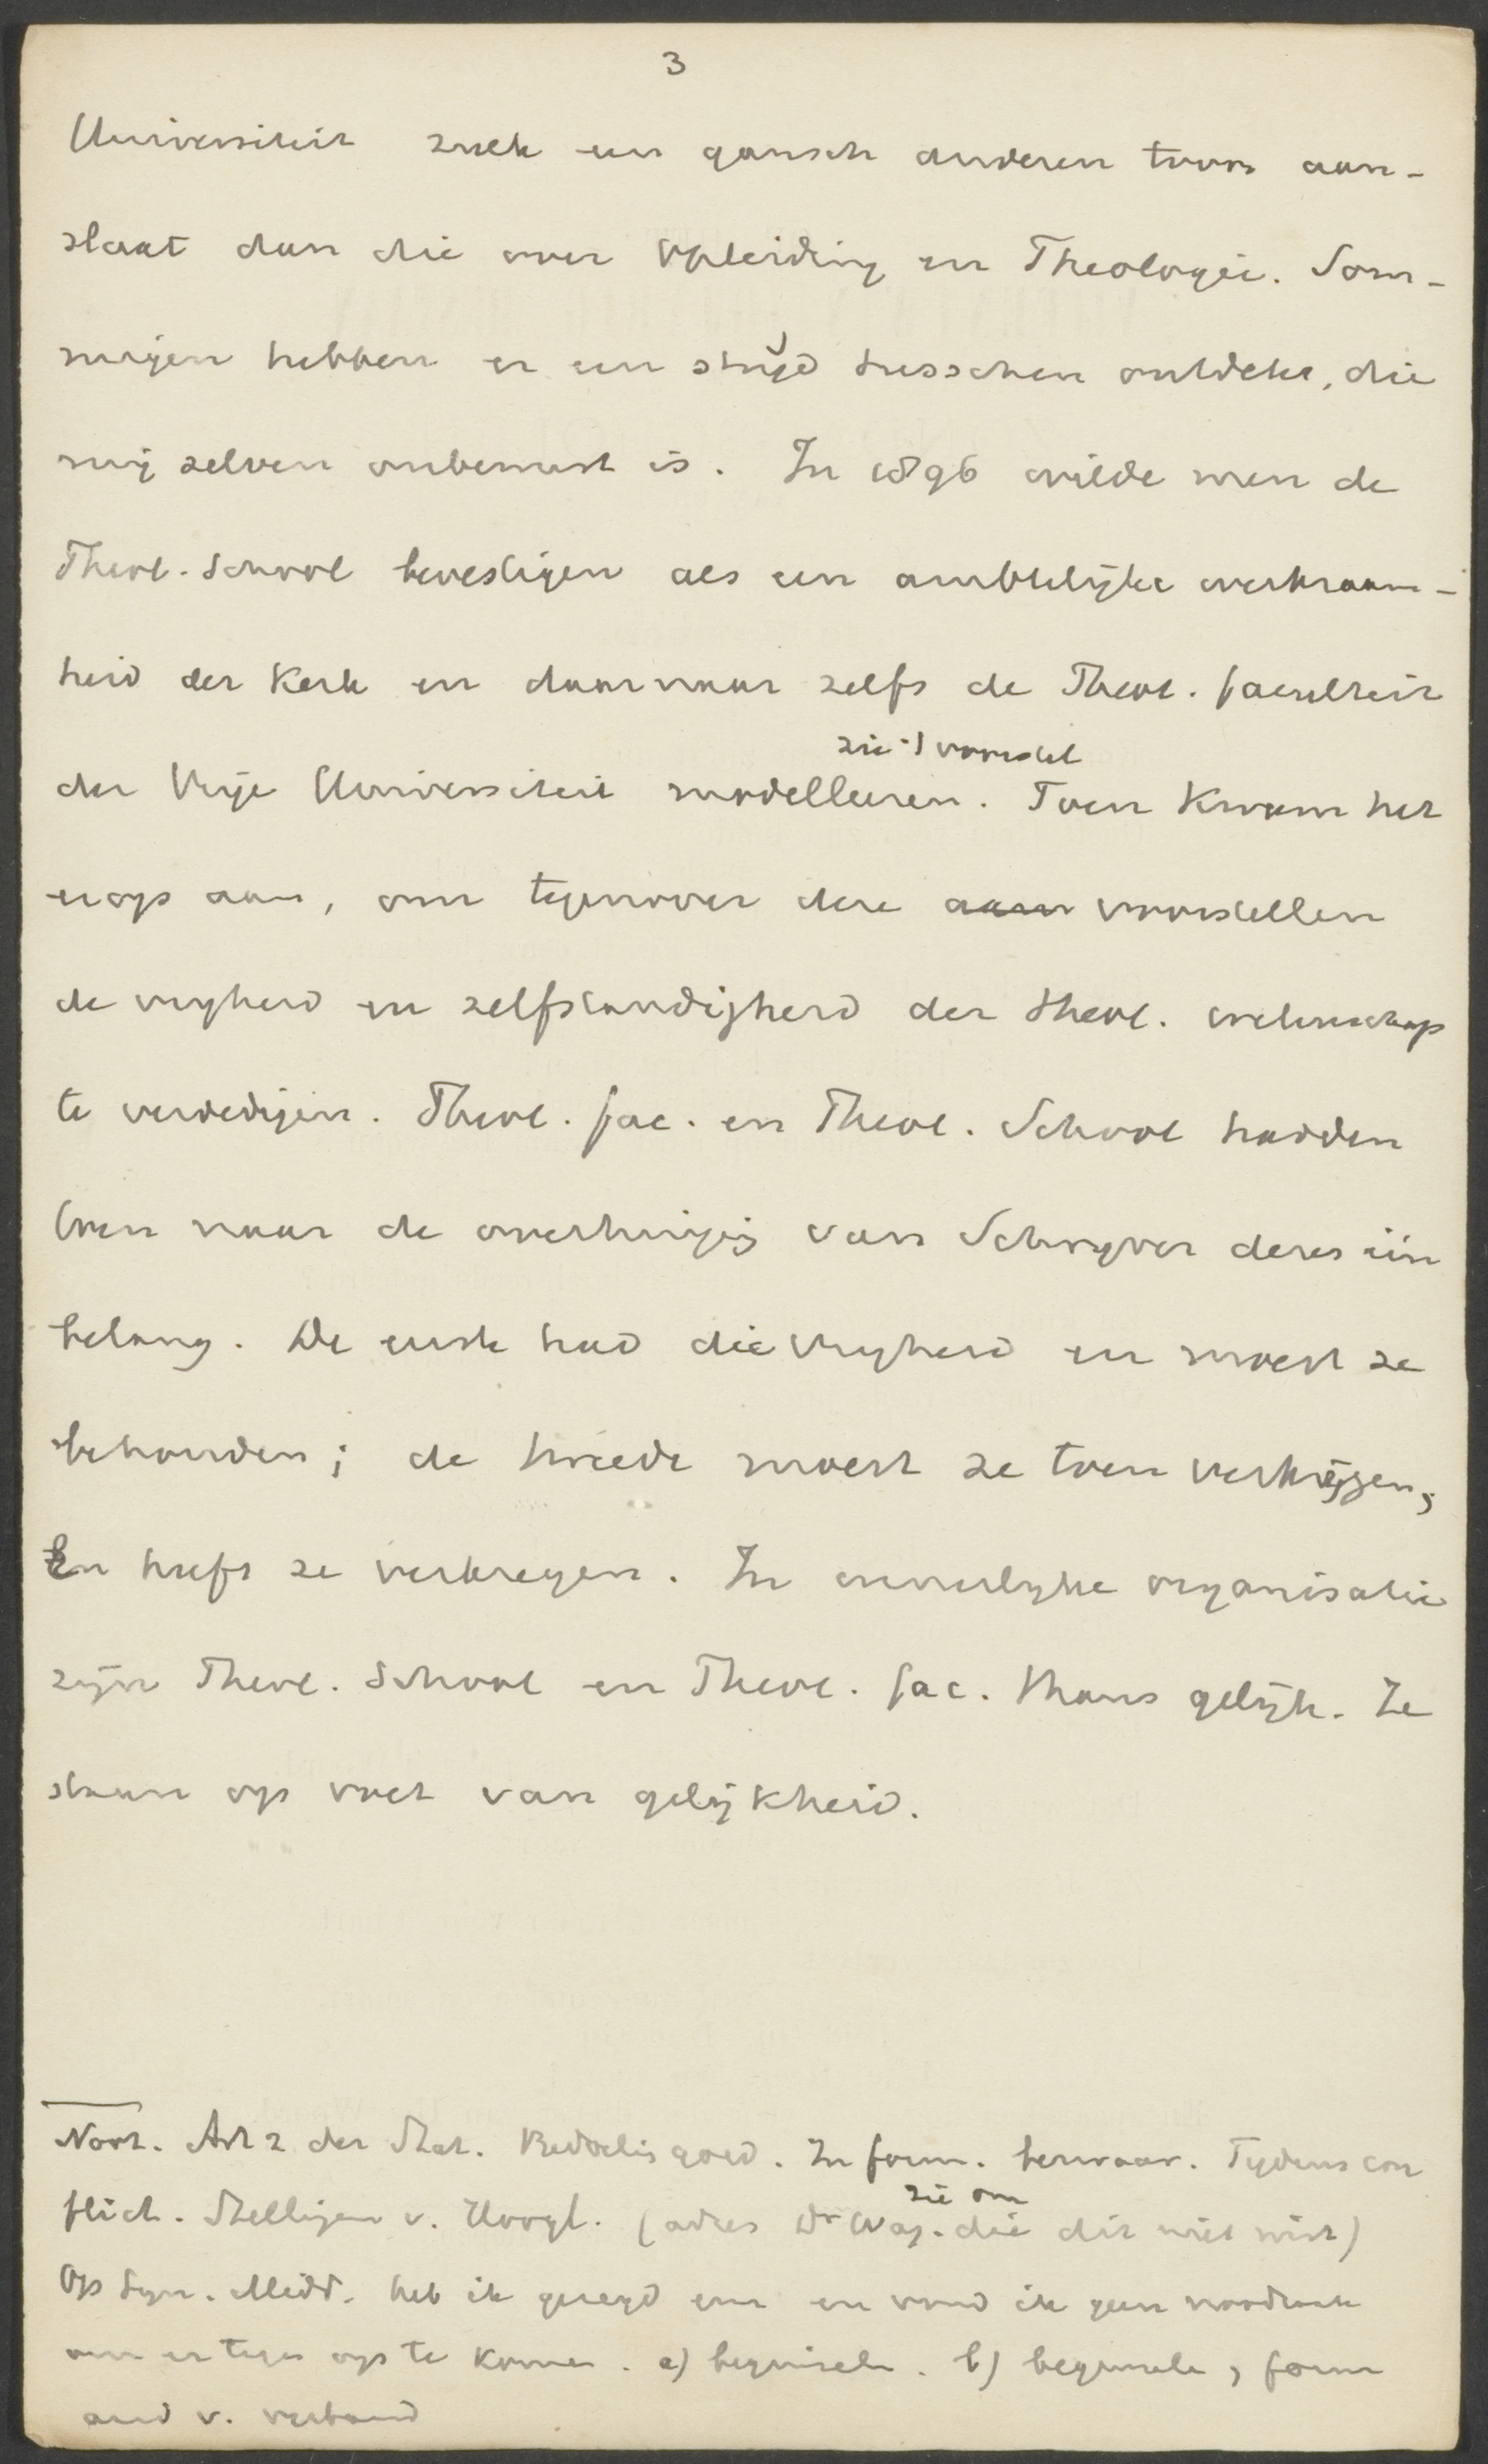 3
Universiteit zulk een gansch anderen toon aan-
slaat dan die over Opleiding en Theologie. Som-
migen hebben er een strijd tusschen ontdekt, die
mij zelven onbewust is. In 1896 wilde men de
Theol. School bevestigen als een ambtelijke werkzaam-
heid der Kerk en daarnaar zelfs de Theol. faculteit
zie 't voorstel
der Vrije Universiteit modelleeren. Toen kwam het
erop aan, om tegenover deze aan voorstellen
de vrijheid en zelfstandigheid der theol. wetenschap
te verdedigen. Theol. fac. en Theol. School hadden
toen naar de overtuiging van Schrijver dezes één
belang. De eerste had die vrijheid en moest ze
behouden; de tweede moest ze toen verkrijgen,
En heeft ze verkregen. In innerlijke organisatie
zijn Theol. School en Theol. fac. thans gelijk. Ze
staan op voet van gelijkheid.
Noot. Art 2 der Stat. Bedoeling goed. In form. bezwaar. Tijdens con
flict. Stellingen v. Hoogl. (adres Dr Wag. die dit niet wist)
zie om
Op Syn. Midd. heb ik gezegd en vond ik geen noodzaak
om er tegen op te komen. a) beginsele. b) beginsele, form
and v. verband